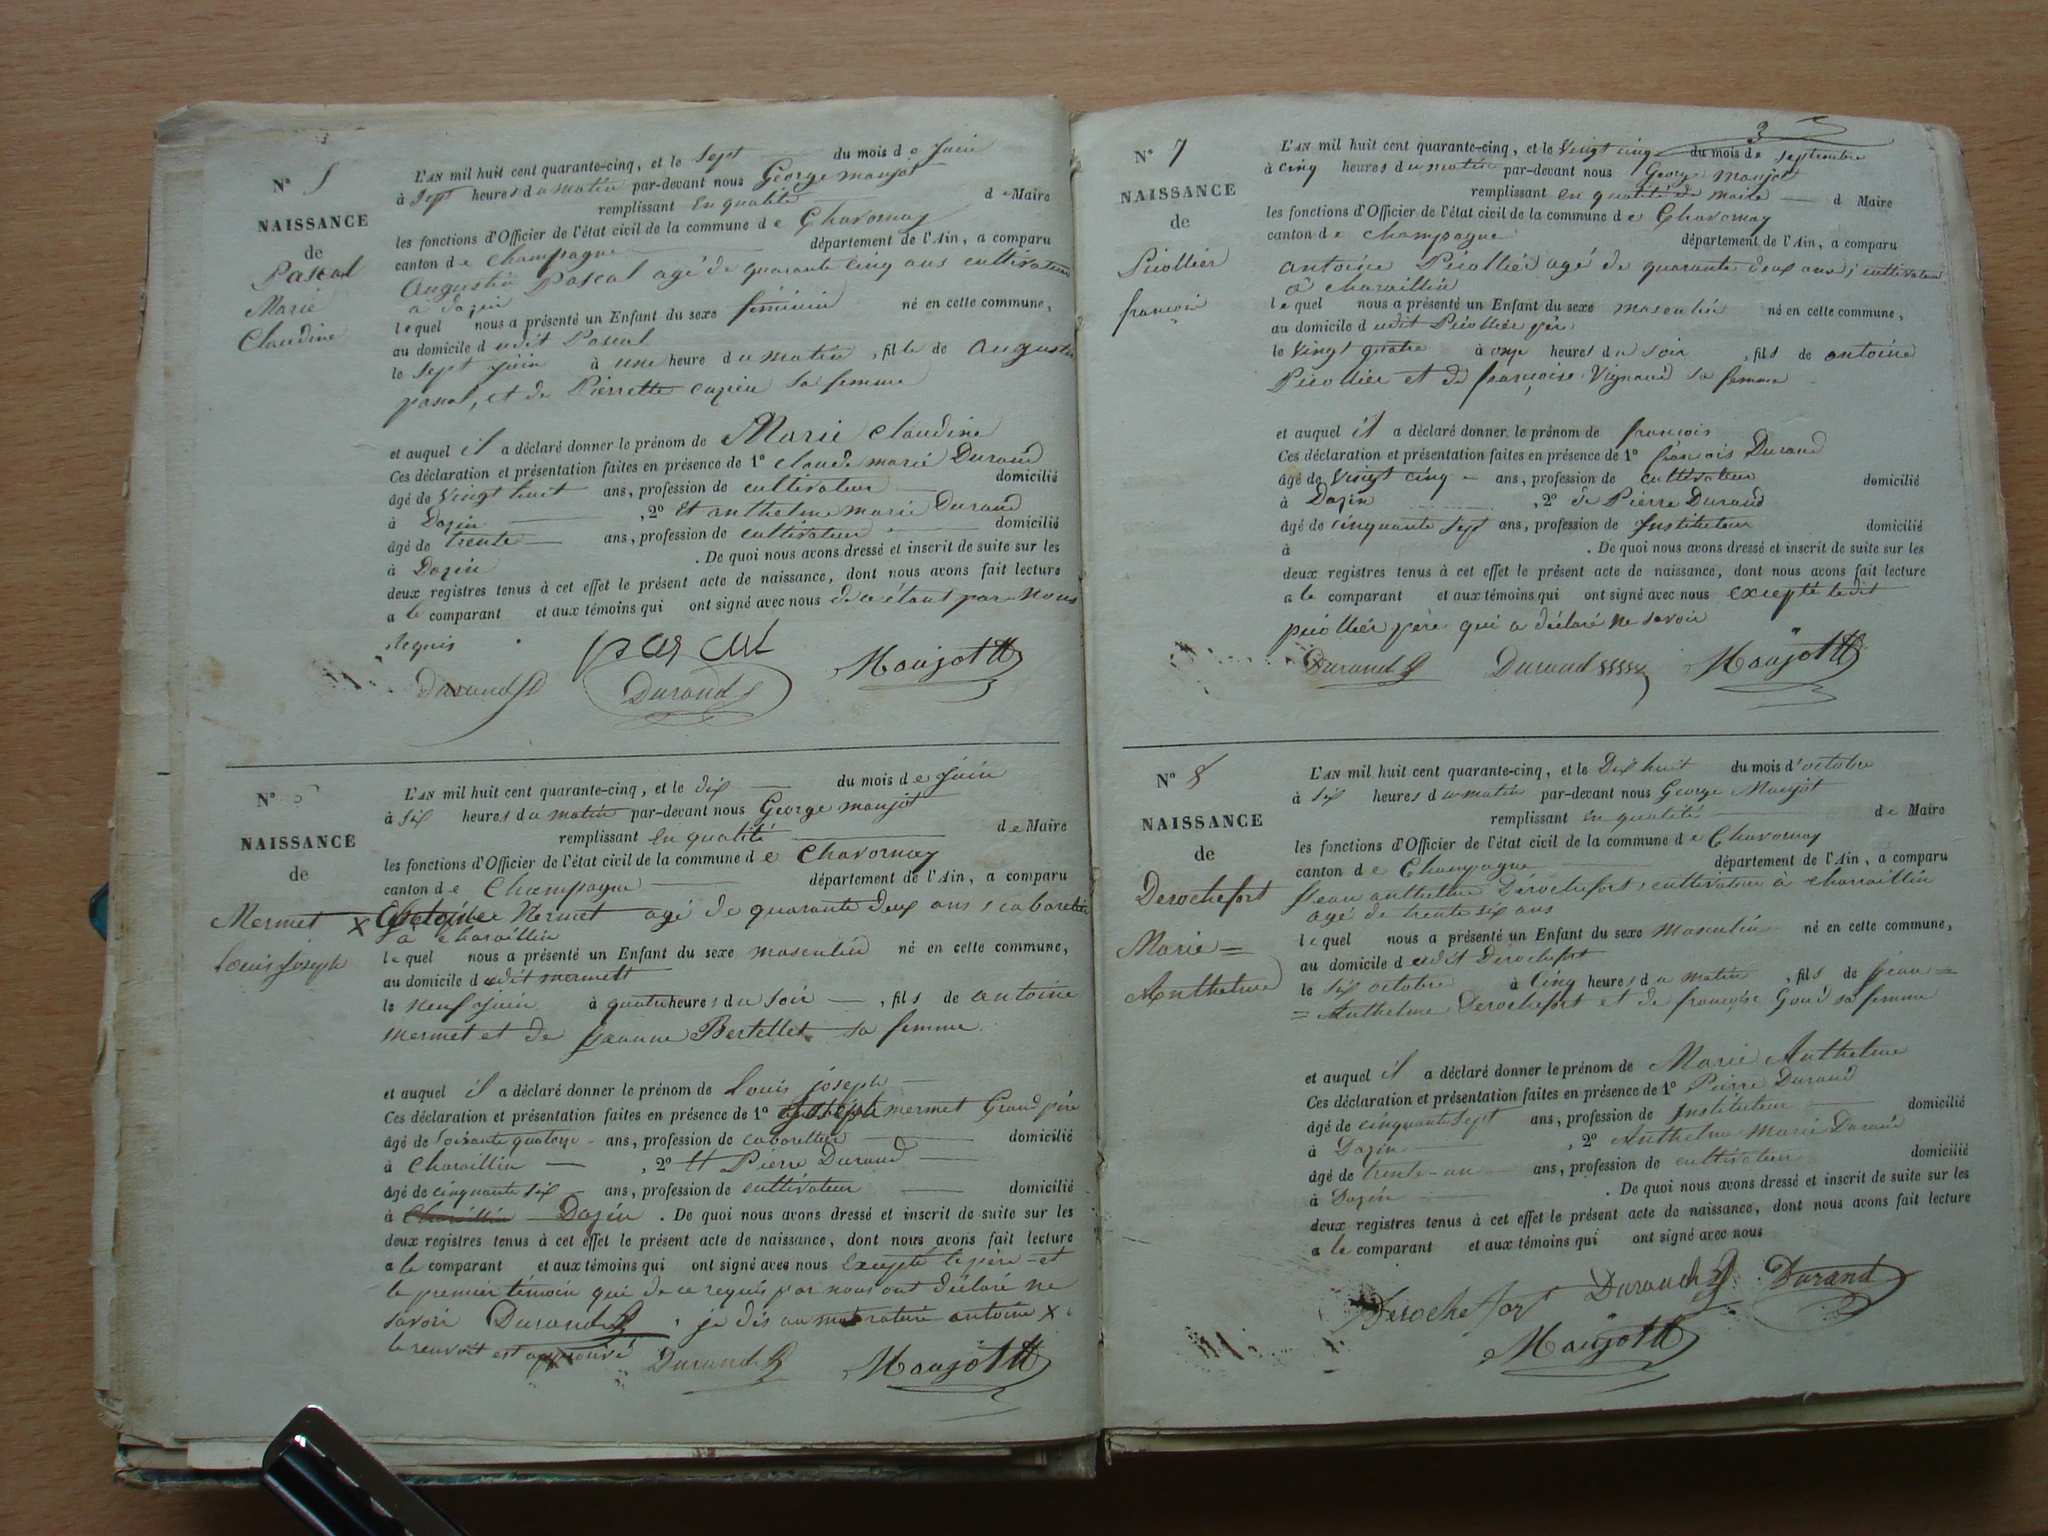 N° 5
NAISSANCE
de
Pascal
Marie
Claudine
L'AN mil huit cent quarante-cinq, et le sept du mois de juin
à sept heures du matin par-devant nous George maujot
remplissant en qualité de Maire
les fonctions d'Officier de l'état civil de la commune de Chavornay
canton de Champagne département de l'Ain, a comparu
augustin Pascal agé de quarante cinq ans cultivateur
à dazin
lequel nous a présenté un Enfant du sexe féminin né en cette commune,
au domicile dudit Pascal
le sept juin à une heure du matin, fille de augustin
pascal, et de Pierrette cazien sa femme
et auquel il a déclaré donner le prénom de Marie claudine
Ces déclaration et présentation faites en présence de 1° claude marie Durand
âgé de vingt huit ans, profession de cultivateur domicilié
à Dazin, 2° et anthelme marie Durand
âgé de trente ans, profession de cultivateur domicilié
à Dazin. De quoi nous avons dressé et inscrit de suite sur les
deux registres tenus à cet effet le présent acte de naissance, dont nous avons fait lecture
a le comparant et aux témoins qui ont signé avec nous de ce étant par nous
requis
pascal
Durand Durand Maujot
N°
NAISSANCE
de
Mermet
Louis Joseph
L'AN mil huit cent quarante-cinq, et le dix du mois de juin
à six heures du matin par-devant nous George maujot
remplissant en qualité de Maire
les fonctions d'Officier de l'état civil de la commune de Chavornay
canton de Champagne département de l'Ain, a comparu
x Mermet agé de quarante deux ans, cabaretier
à charvillin
lequel nous a présenté un Enfant du sexe masculin né en cette commune,
au domicile dudit mermett
le neuf juin à quatre heures du soir, fils de antoine
mermet et de jeanne Bertellet sa femme
et auquel il a déclaré donner le prénom de Louis joseph
Ces déclaration et présentation faites en présence de 1° joseph mermet Grand père
âgé de soixante quatorze ans, profession de cabarettier domicilié
à Charvillin, 2° et Pierre Durand
âgé de cinquante six ans, profession de cultivateur domicilié
à Charvillin Dazin. De quoi nous avons dressé et inscrit de suite sur les
deux registres tenus à cet effet le présent acte de naissance, dont nous avons fait lecture
a le comparant et aux témoins qui ont signé avec nous excepté le père et
le premier témoin qui de ce requis par nous ont déclaré ne
savoir Durand je dis au mot raturé antoine x
le renvoit est approuvé Durand Maujot
3
N° 7
NAISSANCE
de
Picollier
françois
L'AN mil huit cent quarante-cinq, et le vingt cinq du mois de septembre
à cinq heures du matin par-devant nous George Maujot
remplissant en qualité de maire d Maire
les fonctions d'Officier de l'état civil de la commune de Chavornay
canton de champagne département de l'Ain, a comparu
antoine Picollier agé de quarante deux ans, cultivateur
à charvillin
lequel nous a présenté un Enfant du sexe masculin né en cette commune,
au domicile dudit Picollier père
le vingt quatre à onze heures du soir, fils de antoine
Picollier et de françoise Vignand sa femme
et auquel il a déclaré donner le prénom de françois
Ces déclaration et présentation faites en présence de 1° françois Durand
âgé de vingt cinq ans, profession de cultivateur domicilié
à Dazin, 2° de Pierre Durand
âgé de cinquante sept ans, profession de Instituteur domicilié
à . De quoi nous avons dressé et inscrit de suite sur les
deux registres tenus à cet effet le présent acte de naissance, dont nous avons fait lecture
a le comparant et aux témoins qui ont signé avec nous excepté ledit
picollier père qui a déclaré ne savoir
Durand Durand Maujot
N° 8
NAISSANCE
de
Derochefort
Marie =
Anthelme
L'AN mil huit cent quarante-cinq, et le Dix huit du mois d'octobre
à six heures du matin par-devant nous George Maujot
remplissant en qualité de Maire
les fonctions d'Officier de l'état civil de la commune de Chavornay
canton de Champagne département de l'Ain, a comparu
jean anthelme Derochefort, cultivateur à charvillin
agé de trente six ans
lequel nous a présenté un Enfant du sexe Masculin né en cette commune,
au domicile dudit Derochefort
le six octobre à cinq heures du matin, fils de jean =
= Anthelme Derochefort et de françoise Goud sa femme
et auquel il a déclaré donner le prénom de Marie Anthelme
Ces déclaration et présentation faites en présence de 1° Pierre Durand
âgé de cinquante sept ans, profession de Instituteur domicilié
à Dazin, 2° Anthelme Marie Durand
âgé de trente-un ans, profession de cultivateur domicilié
à Dazin. De quoi nous avons dressé et inscrit de suite sur les
deux registres tenus à cet effet le présent acte de naissance, dont nous avons fait lecture
a le comparant et aux témoins qui ont signé avec nous
Derochefort Durand Durand
Maujot